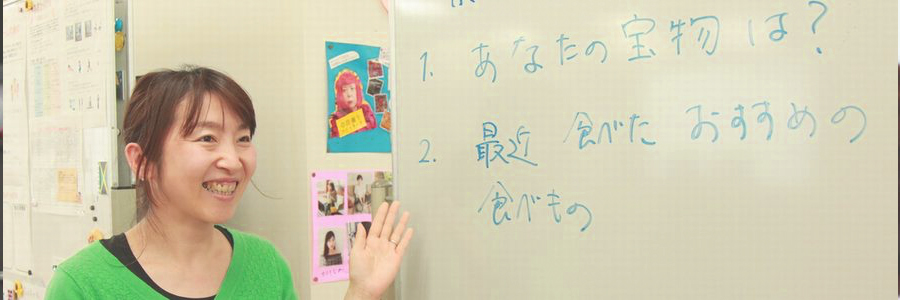 1. あなたの宝物は?
2. 最近 食べた おすすめの
食べもの